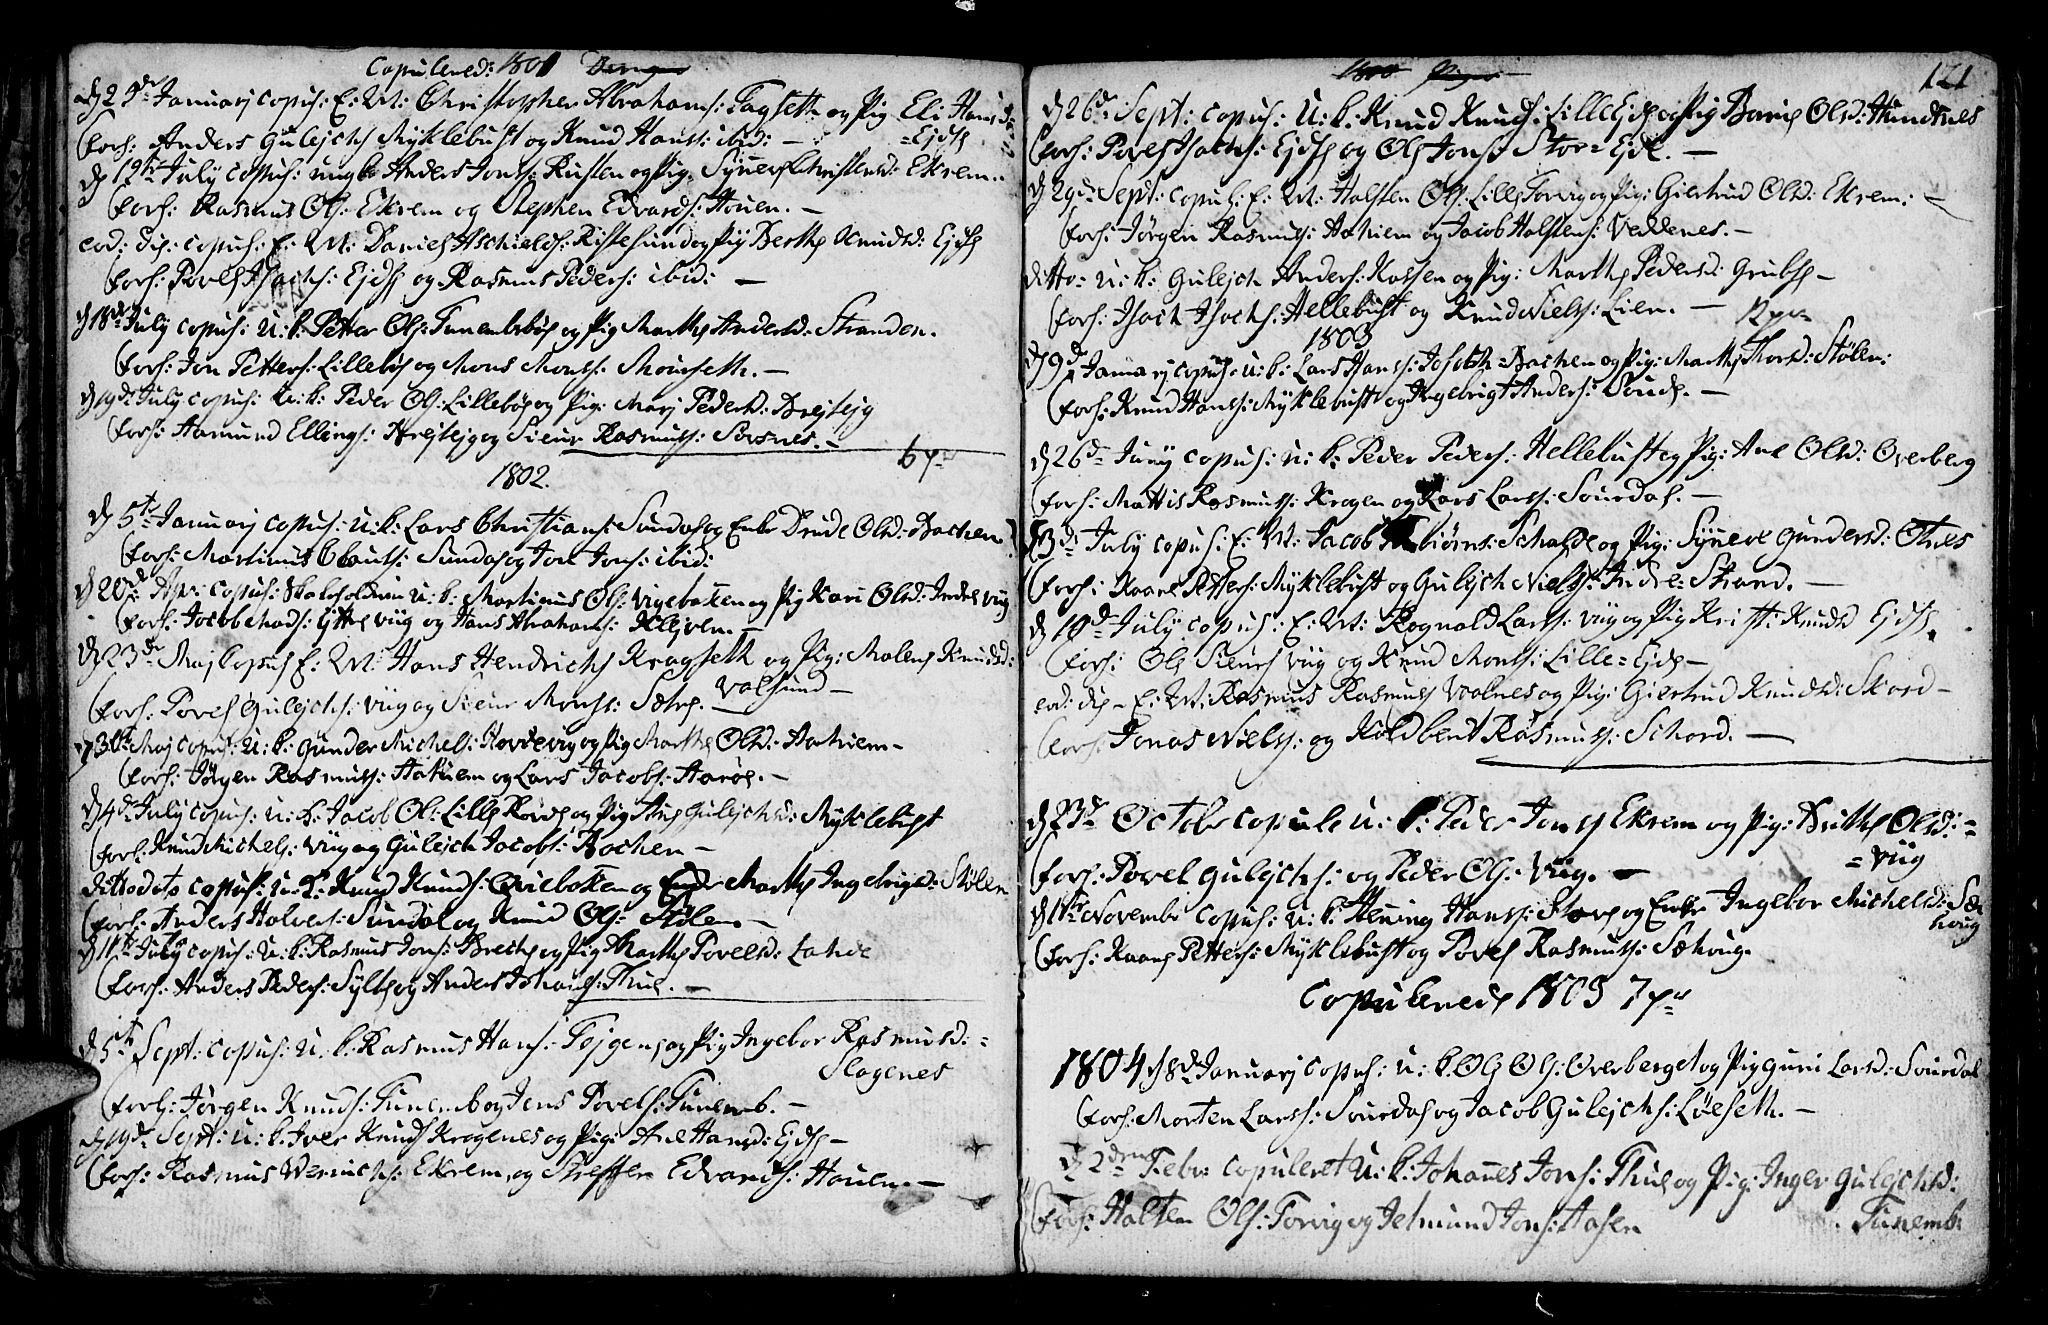 Copulered: 1801
d 29de Januarj copul: E: M: Christopher Abrahams: Tagseth og Pig Eli Hansd:
forl: Anders Gulejchs Mÿklebust og Knud Hanss: ibid: — = Ejdse
d 12te July copul: ungk: Anders Jonss: Rusten og Pig: Sÿnerse Christensd: Ekrem.
forl: Rasmus Ols: Ekrem og Stephen Edvards: Houen. —
eod: die: copul: E: M: Daniel Aschields: Ristesund og Pig Berthe Knudsd: Ejdse
forl: Povel Isachs: Ejdse og Rasmus Peders: ibid: —
d 18de July copul: U: k: Petter Ols: Tunembsböe og Pig Marthe Andersd: Stranden.
forl: Jon Petters: Lilleböe og Mons Monss: Monseth. —
d 19de July copul: U: k: Peder Ols: Lilleböe og Pig: Marj Pedersd: Brejtejg
forl: Aamund Ellings: Brejtejg og Sieur Rasmuss: Sorsnes. —
6 pr
1802.
d 5te Januarj copul: U: k: Lars Christians: Sundal og Enke Drude Olsd: Bachen
forl: Martinus Clauss: Sundal og Jon Jons: ibid:
d 20de Apr: copul: Skalholdnm U: k: Martinus Ols: Vigeboxen og Pig Kari Olsd: Indre Viig
forl: Jacob Mads: Ejttre Viig og Hans Abrahams: Klejven. —
d 23de Maj Copul E: M: Hans Hendrichs Kragseth og Pig: Malene Knudsd:
forl: Povel Gulejchs: Viig og Sieur Monss: Sætre. — Valsund —
d 30te Maj copul: U: k: Gunder Michels: Hovdevig og Pig Marthe Olsd: Aahiem —
forl: Jörgen Rasmuss: Aahiem og Lars Jacobs: Aaröe. —
d 4de July copul: U: k: Jacob Ols: Lille Rovde og Pig Ane Gulejchsd: Mÿklebust
forl: Knud Michels: Viig og Gulejch Jacobs: Bachen —
ditto dito copul: U: k: Knud Knuds: Qvieboxen og Enke Marthe Ingebrigtsd: Stölen
forl: Anders Halvors: Sundal og Knud Ols: Stölen. —
d 11te July copul: U: k: Rasmus Jons: Breche og Pig Marthe Povelsd: Lande
forl: Anders Peders: Sylte og Anders Johans: Thue. —
d 5te Sept: copul: U: k: Rasmus Hans: Tejgene og Pig Ingebor Rasmusd: =
Slagenes
forl: Jörgen Knuds: Tunemb og Jens Povels: Tunemb. —
d 19de Sept: U: k: Iver Knuds Krogenes og Pig: Ane Hansd: Ejdse —
forl: Rasmus Werinchs: Ekrem, og Steffen Edvards: Houen. —
121
d 26de Sept: copul: U: k: Knud Knuds: Lille Ejde og Pig Boriil Olsd: Hundsnes
forl: Povel Isachs: Ejdse og Ole Jons: Stor = Ejde. —
d 29de Sept: copul: E: M: Halsten Ols: Lille Torvig og Pig: Giertrud Olsd: Ekrem: —
forl: Jörgen Rasmuss: Aahiem og Jacob Halstens: Veddenes. —
ditto — U: k: Gulejch Anders: Kaasen og Pig: Marthe Pedersd: Grubse —
forl: Isach Isachs: Hellebust og Knud Niels: Lien. — 12 par
1803
d 9de Januarj copul: U: k: Lars Hanss: Bachen og Pig: Marthe Thorsd: Stölen:
forl: Knud Hanss: Mÿklebust og Ingebrigt Anders: Soude. —
d 26de Juny copul: U: k: Peder Peders: Hellebust og Pig: Ane Olsd: Overberg
forl: Mattis Rasmuss: Krogen og Lars Larss: Sourdal. —
d 3de July copul: E: M: Jacob biörns: Schalde og Pig: Sÿnere Gundersd: Otnes
forl: Kaare Petters: Mÿklebust og Gulejch Niels: Indre Strand. —
d 10de July copul: E: M: Rognald Larss: Viig og Pig Kristi Knudsd Ejdse.
forl: Ole Sieurs Viig og Knud Monss: Lille = Ejde —
eod: die — E: M: Rasmus Rasmuss Volnes og Pig: Giertrud Knudsd: Skord —
forl: Jonas Niels: og Koldbent Rasmuss: Schord. —
d 23de Octobr copule U: k: Peder Jonss Ekrem og Pig: Brithe Olsd: =
= Viig
forl: Povel Gulejchs: og Peder Ols: Viig. —
d 1te Novembr copul: U: k: Hening Hanss: Store og Enke Ingebor Michelsd: Sæ
houg
forl: Kaare Petters: Mÿklebust og Povel Rasmuss: Sæhoug.
Copulerede 1803 7 pr
1804 d 8de Januarj copul: U: k: Ole Ols: Overberget og Pig Guri Larsd: Sourdal
forl: Morten Larss: Sourdal og Jacob Gulejchs: Löeseth. —
d 2den Febr: copuleret U: k: Johannes Jons: Thue og Pig: Inger Gulejchsd:
Tunemb:
forl: Halsten Ols: Torvig og Jetmund Jons: Aasen